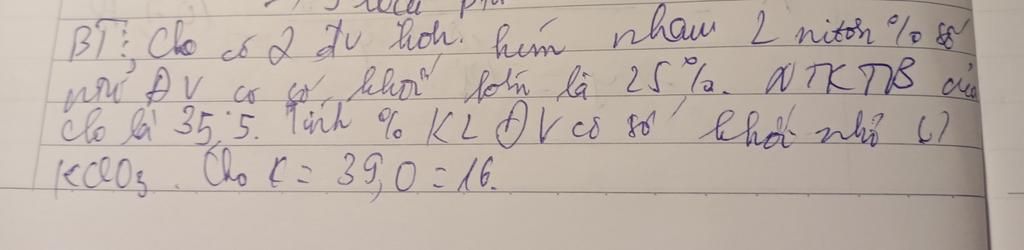 BT: Clo có 2 đv hơn kém nhau 2 nitơn % số
ntử ĐV có số khối lớn là 25%. NTKTB của
clo là 35,5. Tính % KL ĐV có số khối nhỏ ()
KClO3. Cho K = 39, O = 16.